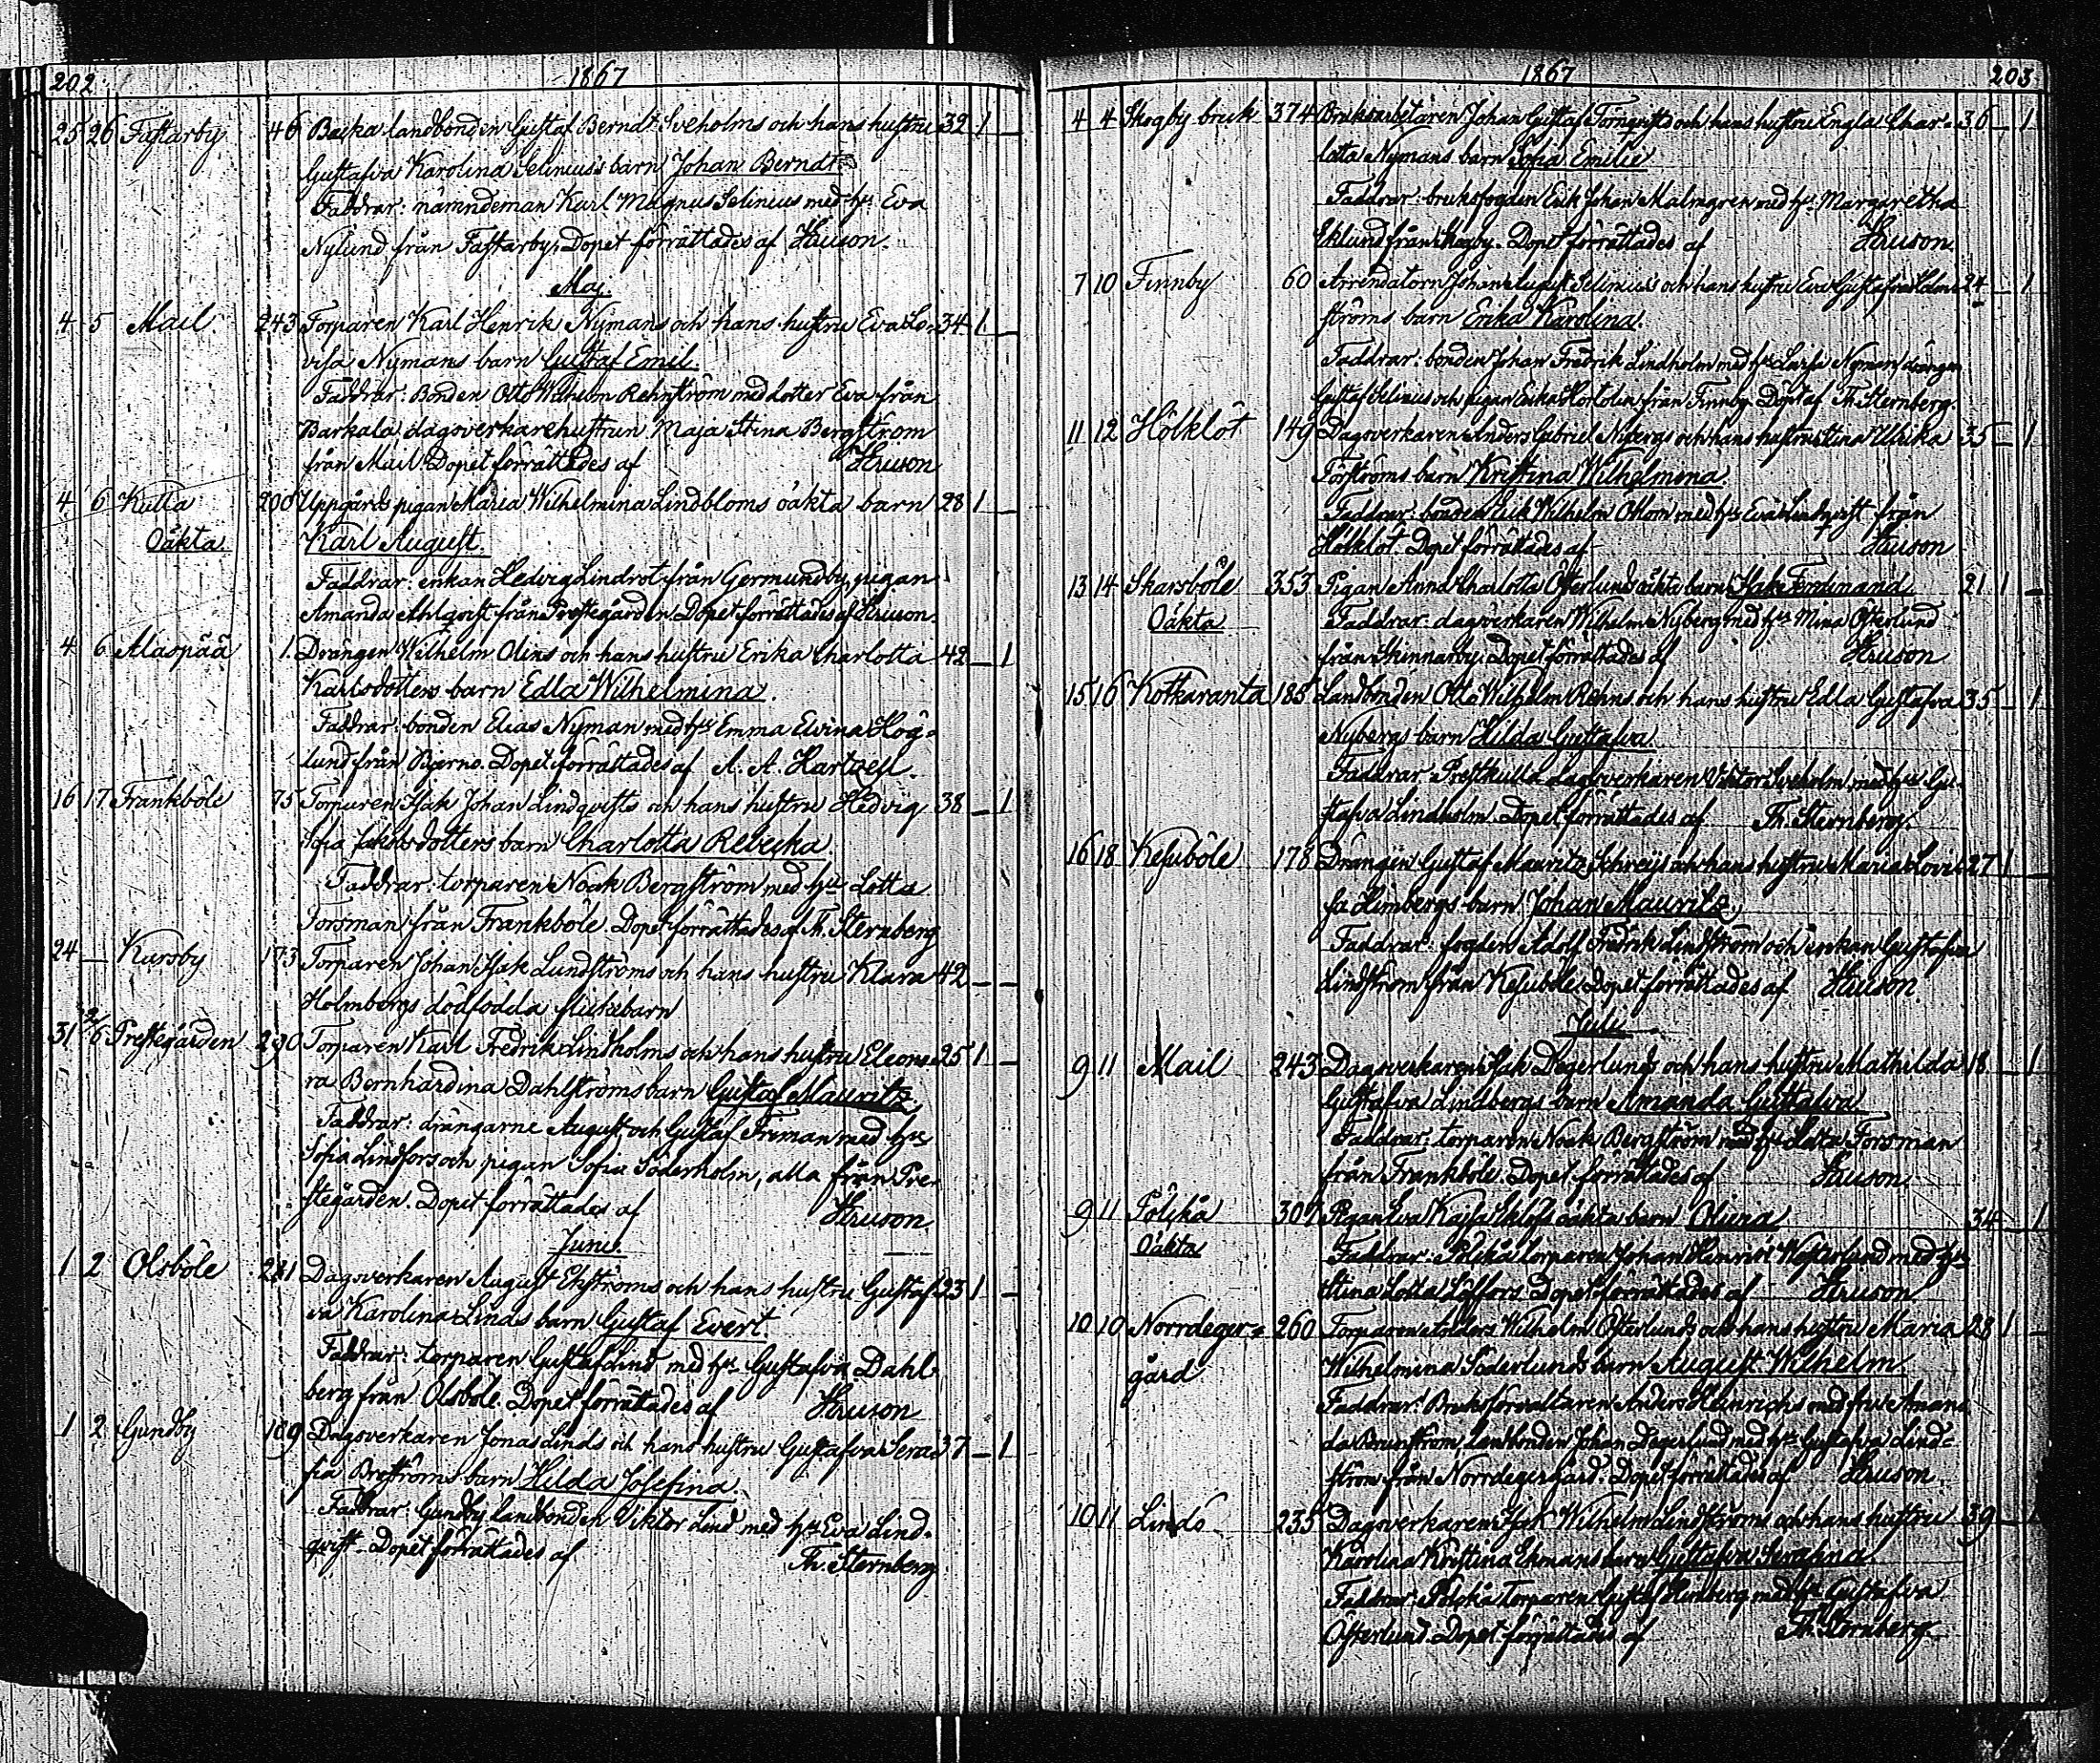 202. 1867
25 26 Fastarby 46 Backa landbonden Gustaf Berndt Sveholms och hans hustru 32 1 —
Gustafva Karolina Selinius's barn Johan Berndt
Faddrar: nämndeman Karl Magnus Selinius med hu Eva
Nylund från Fastarby. Dopet förrättades af Heuson.
Maj.
4 5 Mail 243 Torparen Karl Henrik Nymans och hans hustru Eva Lo- 34 1 —
visa Nymans barn Gustaf Emil.
Faddrar: Bonden Otto Wilhelm Rehnström med dotter Eva från
Barkala, dagsverkarehustrun Maja Stina Bergström
från Mail. Dopet förrättades af Heuson
4 6 Kulla 200 Uppgårds pigan Maria Wilhelmina Lindbloms oäkta barn 28 1 —
Oäkta Karl August.
Faddrar: enkan Hedvig Lindrot från Germundby, pigan
Amanda Ahlqvist från Prestegården. Dopet förrättades af Heuson.
4 6 Alaspää 1. Drängen Wilhelm Olins och hans hustru Erika Charlotta 42 — 1
Karlsdotters barn Edla Wilhelmina.
Faddrar: bonden Elias Nyman med hu Emma Elvina Hög-
lund från Bjerno. Dopet förrättades af A. A. Hartzell.
16 17 Frankböle 75 Torparen Isak Johan Lindqvists och hans hustru Hedvig 38 — 1
Sofia Jakobsdotters barn Charlotta Rebecka
Faddrar: torparen Noak Bergström med hu Lotta
Forsman från Frankböle. Dopet förrättades af Th. Sternberg
24 — Karsby 173 Torparen Johan Isak Lundströms och hans hustru Klara 42 — —
Holmbergs dödfödda flickebarn
31 2/6 Prestegården 290 Torparen Karl Fredrik Lindholms och hans hustru Eleono- 25 1 —
ra Bernhardina Dahlströms barn Gustaf Mauritz.
Faddrar: drängarne August och Gustaf Friman med hu
Sofia Lindfors och pigan Sofia Söderholm, alla från Pre-
stegården. Dopet förrättades af Heuson
Juni.
1 2 Olsböle 281 Dagsverkaren August Ekströms och hans hustru Gustaf- 23 1 —
va Karolina Linds barn Gustaf Evert
Faddrar: torparen Gustaf Lind med hu Gustafva Dahl-
berg från Olsböle. Dopet förrättades af Heuson
1 2 Gundby 109 Dagsverkaren Jonas Linds och hans hustru Gustafva Sera- 37 — 1
fia Broströms barn Hilda Josefina.
Faddrar: Gundby landbonden Viktor Lind med hu Eva Lind-
qvist. Dopet förrättades af Th. Sternberg
1867 203
4 4 Skogby bruk 374 Bruksarbetaren Johan Gustaf Törnqvists och hans hustru Engla Char- 36 — 1
lotta Nymans barn Sofia Emilie
Faddrar: bruksfogden Erik Johan Malmgren med hu Margaretha
Eklund från Skogby. Dopet förrättades af Heuson.
7 10 Finnby 60 Arrendatorn Johan August Selinius's och hans hustru Eva Gustafva Holm- 24 — 1
ströms barn Erika Karolina.
Faddrar: bonden Johan Fredrik Lindholm med hu Lovisa Nyman, drängen
Gustaf Selinius och pigan Erika från Finnby. Döpt af Th. Sternberg.
11 12 Hölklöt 149 Dagsverkaren Anders Gabriel Nybergs och hans hustru Stina Ulrika 35 — 1
Forströms barn Kristina Wilhelmina.
Faddrar: bonden Erik Wilhelm med hu Eva Lindqvist från
Hölklöt. Dopet förrättades af Heuson
13 14 Skarsböle 353 Pigan Anna Charlotta Österlunds oäkta barn Isak Ferdinand 21 1 —
Oäkta Faddrar: dagsverkaren Wilhelm Nyberg med hu Mina Österlund
från Skinnarby. Dopet förrättades af Heuson
15 16 Kotkaranta 185 Landbonden Otto Wilhelm Rehns och hans hustru Edla Gustafva 35 — 1
Nybergs barn Hilda Gustafva
Faddrar: Prestkulla dagsverkaren Viktor Sveholm med hu Gu-
stafva Lindholm. Dopet förrättades af Th. Sternberg.
16 18 Kesuböle 178 Drängen Gustaf Mauritz och hans hustru Maria Lovi- 27 1 —
sa Limbergs barn Johan Mauritz
Faddrar: fogden Adolf Fredrik Lindström och enkan Gustafva
Lindström från Kesuböle. Dopet förrättades af Heuson.
Juli
9 11 Mail 243 Dagsverkaren Isak Degerlunds och hans hustru Mathilda 18 — 1
Gustafva Lindbergs barn Amanda Gustafva
Faddrar: torparen Noak Bergström med hu Lotta Forsman
från Frankböle. Dopet förrättades af Heuson
9 11 Pölckä 307 Pigan Eva Kajsa oäkta barn Olivia 34 — 1
Oäkta Faddrar: Pölckä torparen Johan Henrik Westerlund med hu
Stina Lotta Löffors. Dopet förrättades af Heuson
10 10 Norrdeger- 260 Torparen Wilhelm Österlunds och hans hustru Maria 28 1 —
gård Wilhelmina Söderlunds barn August Wilhelm
Faddrar: Bruksförvaltaren Anders Heinrichs med fru Aman-
da Brunström, landbonden Johan Degerlund med hu Gustafva Lind-
ström från Norrdegergård. Dopet förrättades af Heuson
10 11 Lindö 235 Dagsverkaren Isak Wilhelm Lindströms och hans hustru 39 — 1
Karolina Kristina Ekmans barn Gustafva Serafina
Faddrar: Pölckä torparen Gustaf med hu Gustafva
Österlund. Dopet förrättades af Th. Sternberg